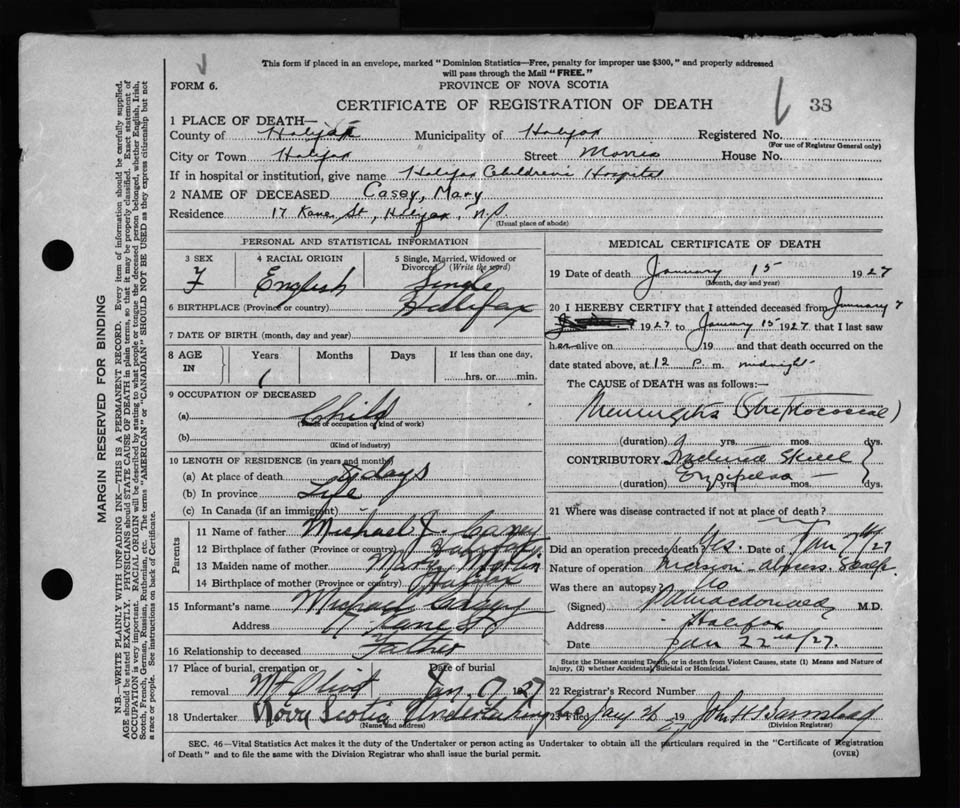 This form if placed in an envelope, marked "Dominion Statistics—Free, penalty for improper use $300," and properly addressed
will pass through the Mail "FREE."
FORM 6.
PROVINCE OF NOVA SCOTIA
CERTIFICATE OF REGISTRATION OF DEATH
38
1 PLACE OF DEATH—
County of Halifax Municipality of Halifax Registered No.
(For use of Registrar General only)
City or Town Halifax Street Morris House No.
If in hospital or institution, give name Halifax Children's Hospital
2 NAME OF DECEASED Casey, Mary
Residence 17 Kane St, Halifax, N.S.
(Usual place of abode)
PERSONAL AND STATISTICAL INFORMATION
3 SEX
F
4 RACIAL ORIGIN
English
5 Single, Married, Widowed or Divorced (Write the word)
Single
6 BIRTHPLACE (Province or country) Halifax
7 DATE OF BIRTH (month, day and year)
8 AGE IN
Years Months Days If less than one day,
1
hrs. or min.
9 OCCUPATION OF DECEASED
(a) Child
(Trade of occupation of kind of work)
(b)
(Kind of industry)
10 LENGTH OF RESIDENCE (in years and months)
(a) At place of death 8 days
(b) In province Life
(c) In Canada (if an immigrant)
Parents
11 Name of father Michael J. Casey
12 Birthplace of father (Province or country)
13 Maiden name of mother Mary
14 Birthplace of mother (Province or country) Halifax
15 Informant's name Michael Casey
Address 17 Kane St
16 Relationship to deceased Father
17 Place of burial, cremation or removal Mt Olivet
Date of burial Jan. 17 1927
18 Undertaker Nova Scotia Undertaking Co
(Name and address)
MEDICAL CERTIFICATE OF DEATH
19 Date of death January 15 1927
(Month, day and year)
20 I HEREBY CERTIFY that I attended deceased from January 7
1927 to January 15 1927 that I last saw
her alive on 19 and that death occurred on the
date stated above, at 12 P. m. midnight
The CAUSE OF DEATH was as follows:—
Meningitis (Streptococcal)
(duration) yrs. mos. dys.
CONTRIBUTORY Fractured Skull
Erysipelas
(duration) yrs. mos. dys.
21 Where was disease contracted if not at place of death?
Did an operation precede death Yes. Date of Jan 7 27
Nature of operation Incision - abscess. Scalp.
Was there an autopsy? No
(Signed) Macdonald M.D.
Address Halifax
Date Jan 22nd /27.
State the Disease causing Death, or in death from Violent Causes, state (1) Means and Nature of
Injury, (2) whether Accidental, Suicidal or Homicidal.
22 Registrar's Record Number
23 Filed Jany 26 19 John H Barnstead
(Division Registrar)
SEC. 46—Vital Statistics Act makes it the duty of the Undertaker or person acting as Undertaker to obtain all the particulars required in the "Certificate of Registration
of Death" and to file the same with the Division Registrar who shall issue the burial permit.
(OVER)
MARGIN RESERVED FOR BINDING
N.B.—WRITE PLAINLY WITH UNFADING INK—THIS IS A PERMANENT RECORD. Every item of information should be carefully supplied.
AGE should be stated EXACTLY. PHYSICIANS should STATE CAUSE OF DEATH in plain terms, so that it may be properly classified. Exact statement of
OCCUPATION is very important. RACIAL ORIGIN will be described by stating to what people or tongue the deceased person belonged, whether English, Irish,
Scotch, French, German, Russian, Ruthenian, etc. The terms "AMERICAN" or "CANADIAN" SHOULD NOT BE USED as they express citizenship but not
a race or people. See instructions on back of Certificate.